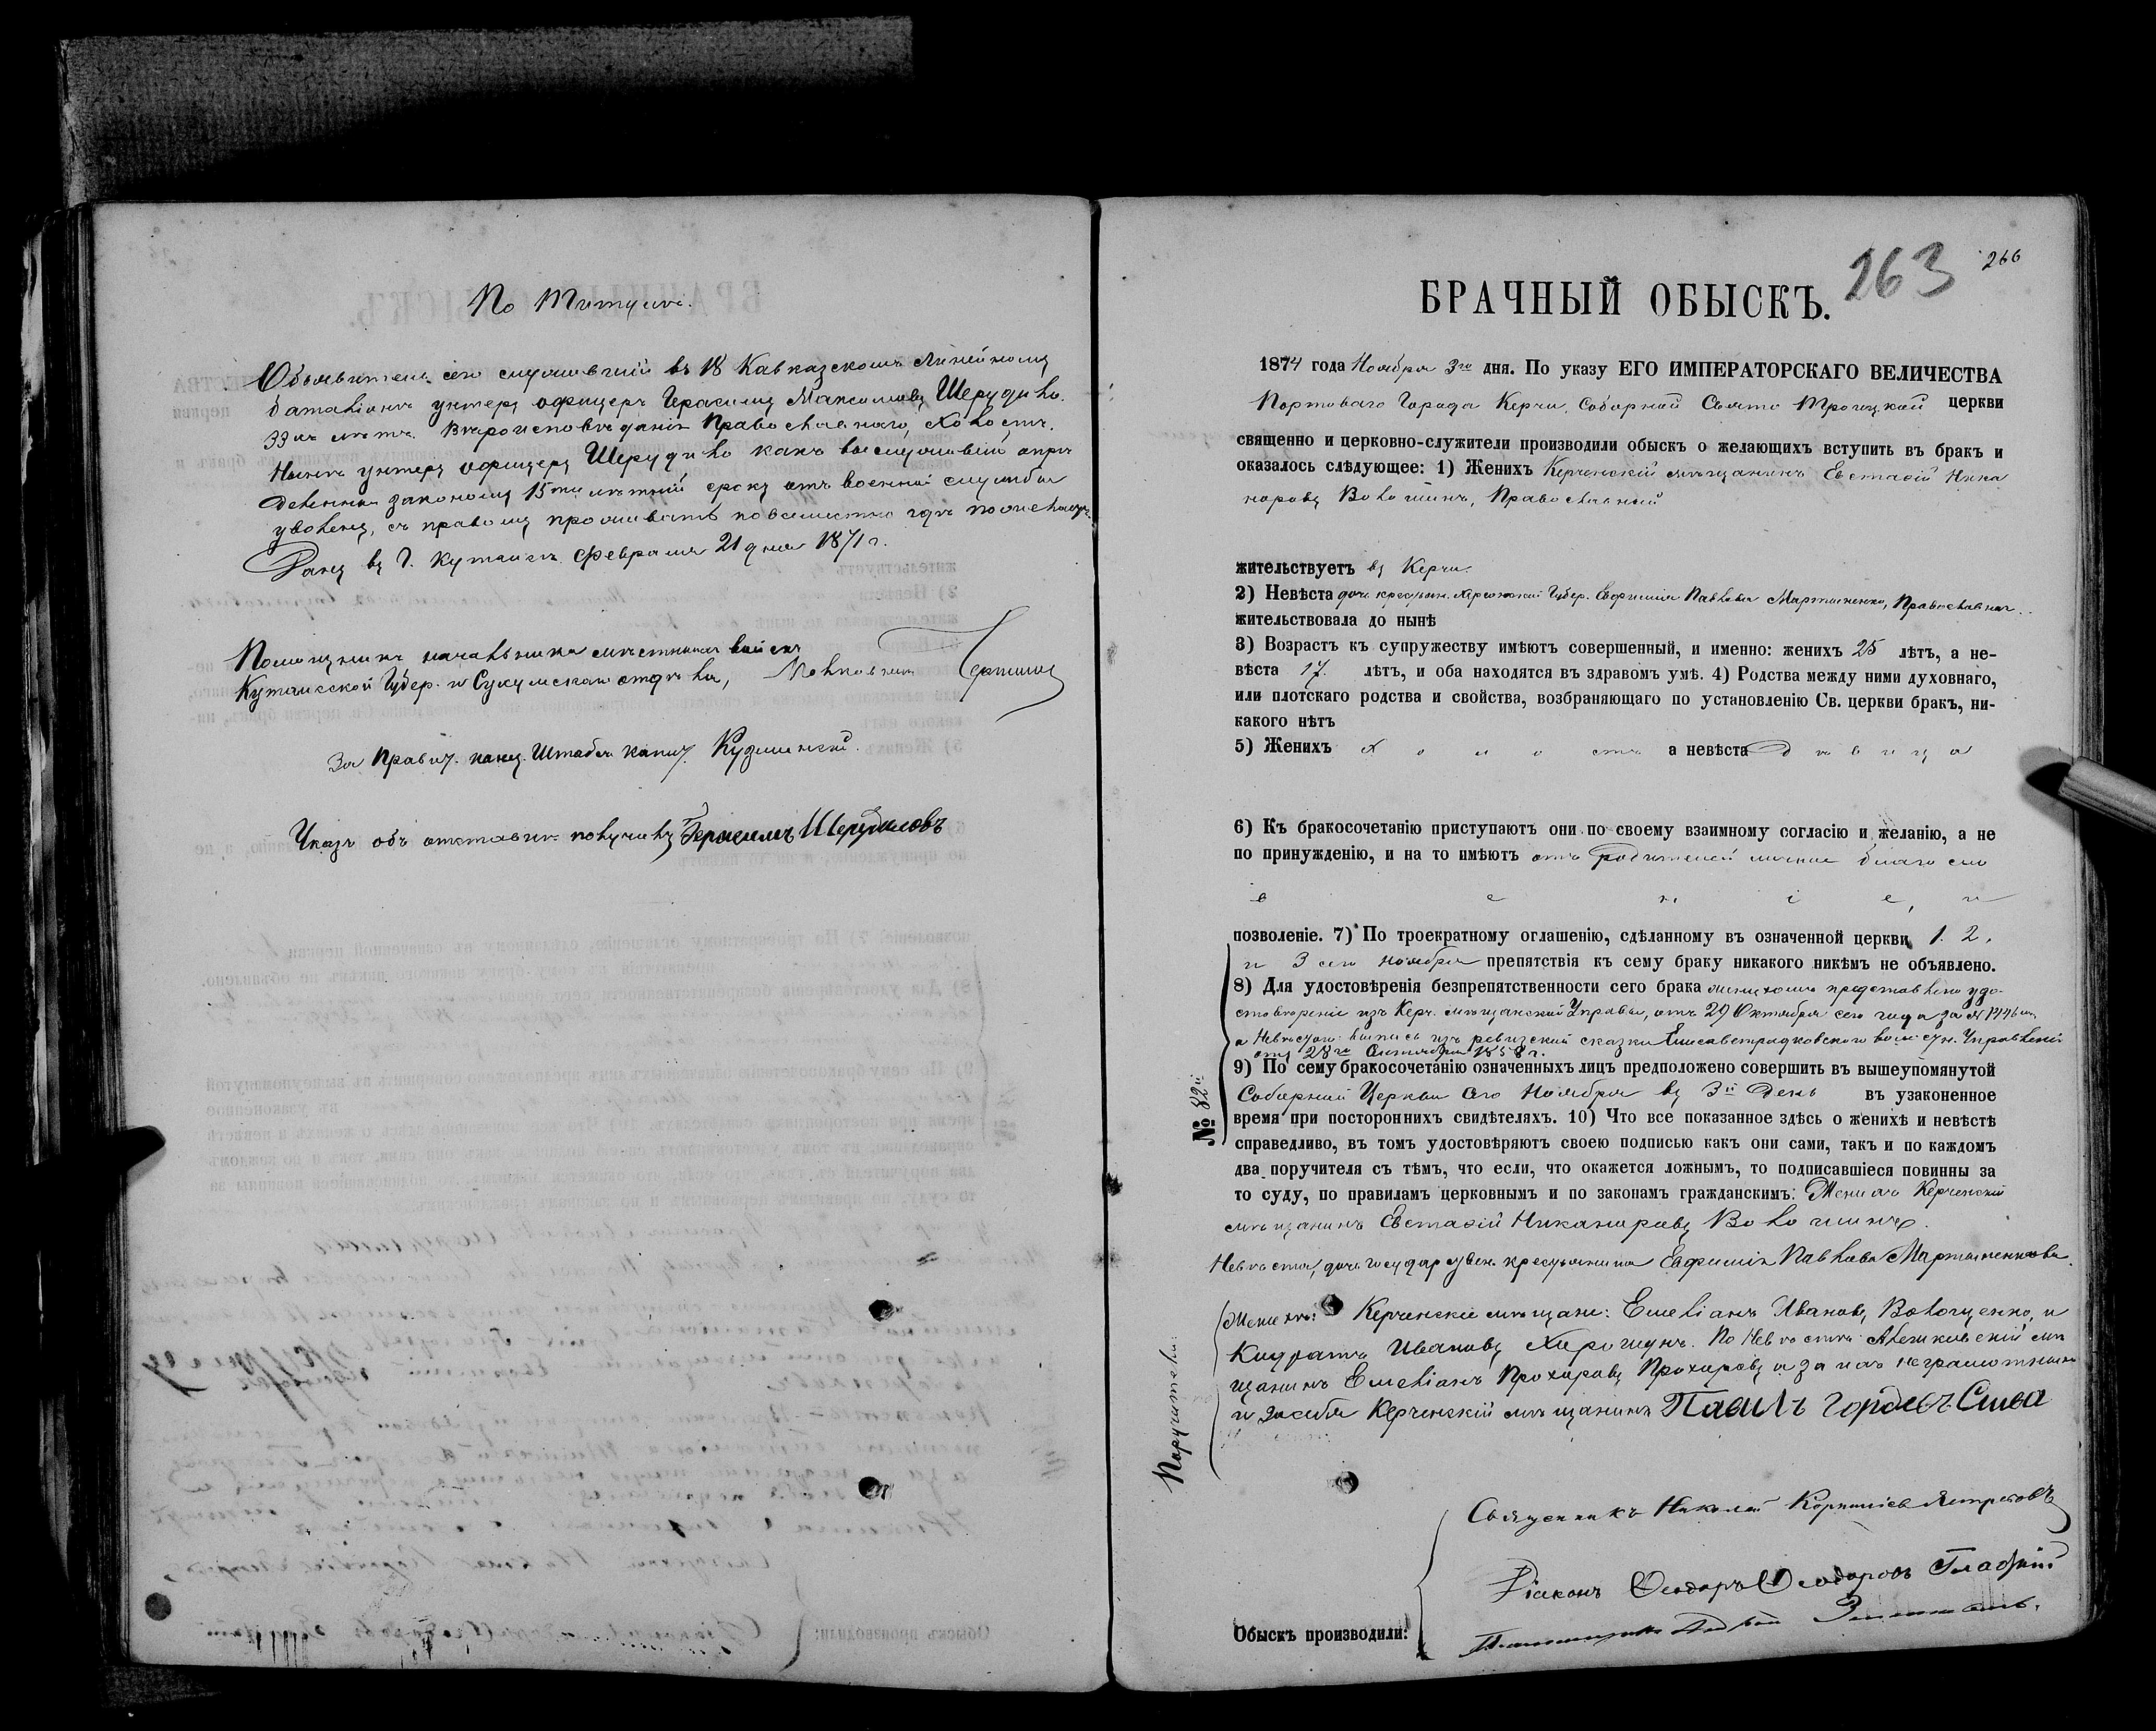 По Титулѣ.
Объявитель сего служившій въ 18 Кавказскомъ Линейномъ
баталіонѣ унтеръ офицеръ Герасимъ Максимовъ Шерудило
33хъ лѣтъ. Вѣроисповѣданія Православнаго, Холостъ.
Нынѣ унтеръ офицеръ Шерудило какъ выслужившій опре
деленный закономъ 15ти лѣтній срокъ отъ военной службы
уволенъ, съ правомъ проживать повсемѣстно гдѣ пожелаетъ.
Данъ въ Г. Кутаисѣ Февраля 21 дня 1871 г.
Помощникъ начальника мѣстныхъ войскъ
Кутаисской Губер. и Сухумскаго отдѣла, Полковникъ
За Правит. канц. Штабсъ капит.
Указъ объ отставкѣ получилъ Герасимъ Шерудиловъ
263
266
БРАЧНЫЙ ОБЫСКЪ.
1874 года Ноября 3го дня. По указу ЕГО ИМПЕРАТОРСКАГО ВЕЛИЧЕСТВА
Портоваго Города Керчи, Соборной Свято Троицкой церкви
священно и церковно-служители производили обыскъ о желающихъ вступить въ бракъ и
оказалось слѣдующее: 1) Женихъ Керченскій мѣщанинъ Евстафій Ника
норовъ Волошинъ, Православный
жительствуетъ въ Керчи.
2) Невѣста дочь крестьян. Херсонской Губер. Евфимія Павлова Мартыненко, Православная.
жительствовала до нынѣ
3) Возрастъ къ супружеству имѣютъ совершенный, и именно: женихъ 25 лѣтъ, а не-
вѣста 17. лѣтъ, и оба находятся въ здравомъ умѣ. 4) Родства между ними духовнаго,
или плотскаго родства и свойства, возбраняющаго по установленію Св. церкви бракъ, ни-
какого нѣтъ
5) Женихъ Холостъ а невѣста Дѣвица
6) Къ бракосочетанію приступаютъ они по своему взаимному согласію и желанію, а не
по принужденію, и на то имѣютъ отъ родителей личное благосло
веніе, и
позволеніе. 7) По троекратному оглашенію, сдѣланному въ означенной церкви 1. 2.
и 3 сего Ноября препятствія къ сему браку никакого никѣмъ не объявлено.
8) Для удостовѣренія безпрепятственности сего брака женихомъ представлено удо-
стовѣреніе изъ Керч. мѣщанской Управы, отъ 29 Октября сего года за №
а Невѣстою выпись изъ ревизской сказки Елисаветградковского волостн. Управленія
отъ 28го Октября 1858 г.
9) По сему бракосочетанію означенныхъ лицъ предположено совершить въ вышеупомянутой
Соборной Церкви сего Ноября въ 3й День въ узаконенное
время при постороннихъ свидѣтеляхъ. 10) Что все показанное здѣсь о женихѣ и невѣстѣ
справедливо, въ томъ удостовѣряютъ своею подписью какъ они сами, такъ и по каждомъ
два поручителя съ тѣмъ, что если, что окажется ложнымъ, то подписавшіеся повинны за
то суду, по правиламъ церковнымъ и по законамъ гражданскимъ: Женихъ Керченскій
мѣщанинъ Евстафій Никаноровъ Волошинъ.
Невѣста, дочь государствен. крестьянина Евфимія Павлова Мартыненкова.
№ 82й
Поручители:
Женихѣ: Керченскіе мѣщане: Емеліанъ Ивановъ Волощенко, и
Кидратъ Ивановъ По Невѣстѣ: Алешковскій мѣ
щанинъ Емеліанъ Прохоровъ Прохоровъ а за нихъ неграмотныхъ
и за себя Керченскій мѣщанинъ Павилъ Гордѣевъ Слива
Обыскъ производили:
Священникъ Николай Корниліевъ Ястребовъ
Діаконъ Ѳеодоръ Ѳеодоровъ Гладкій